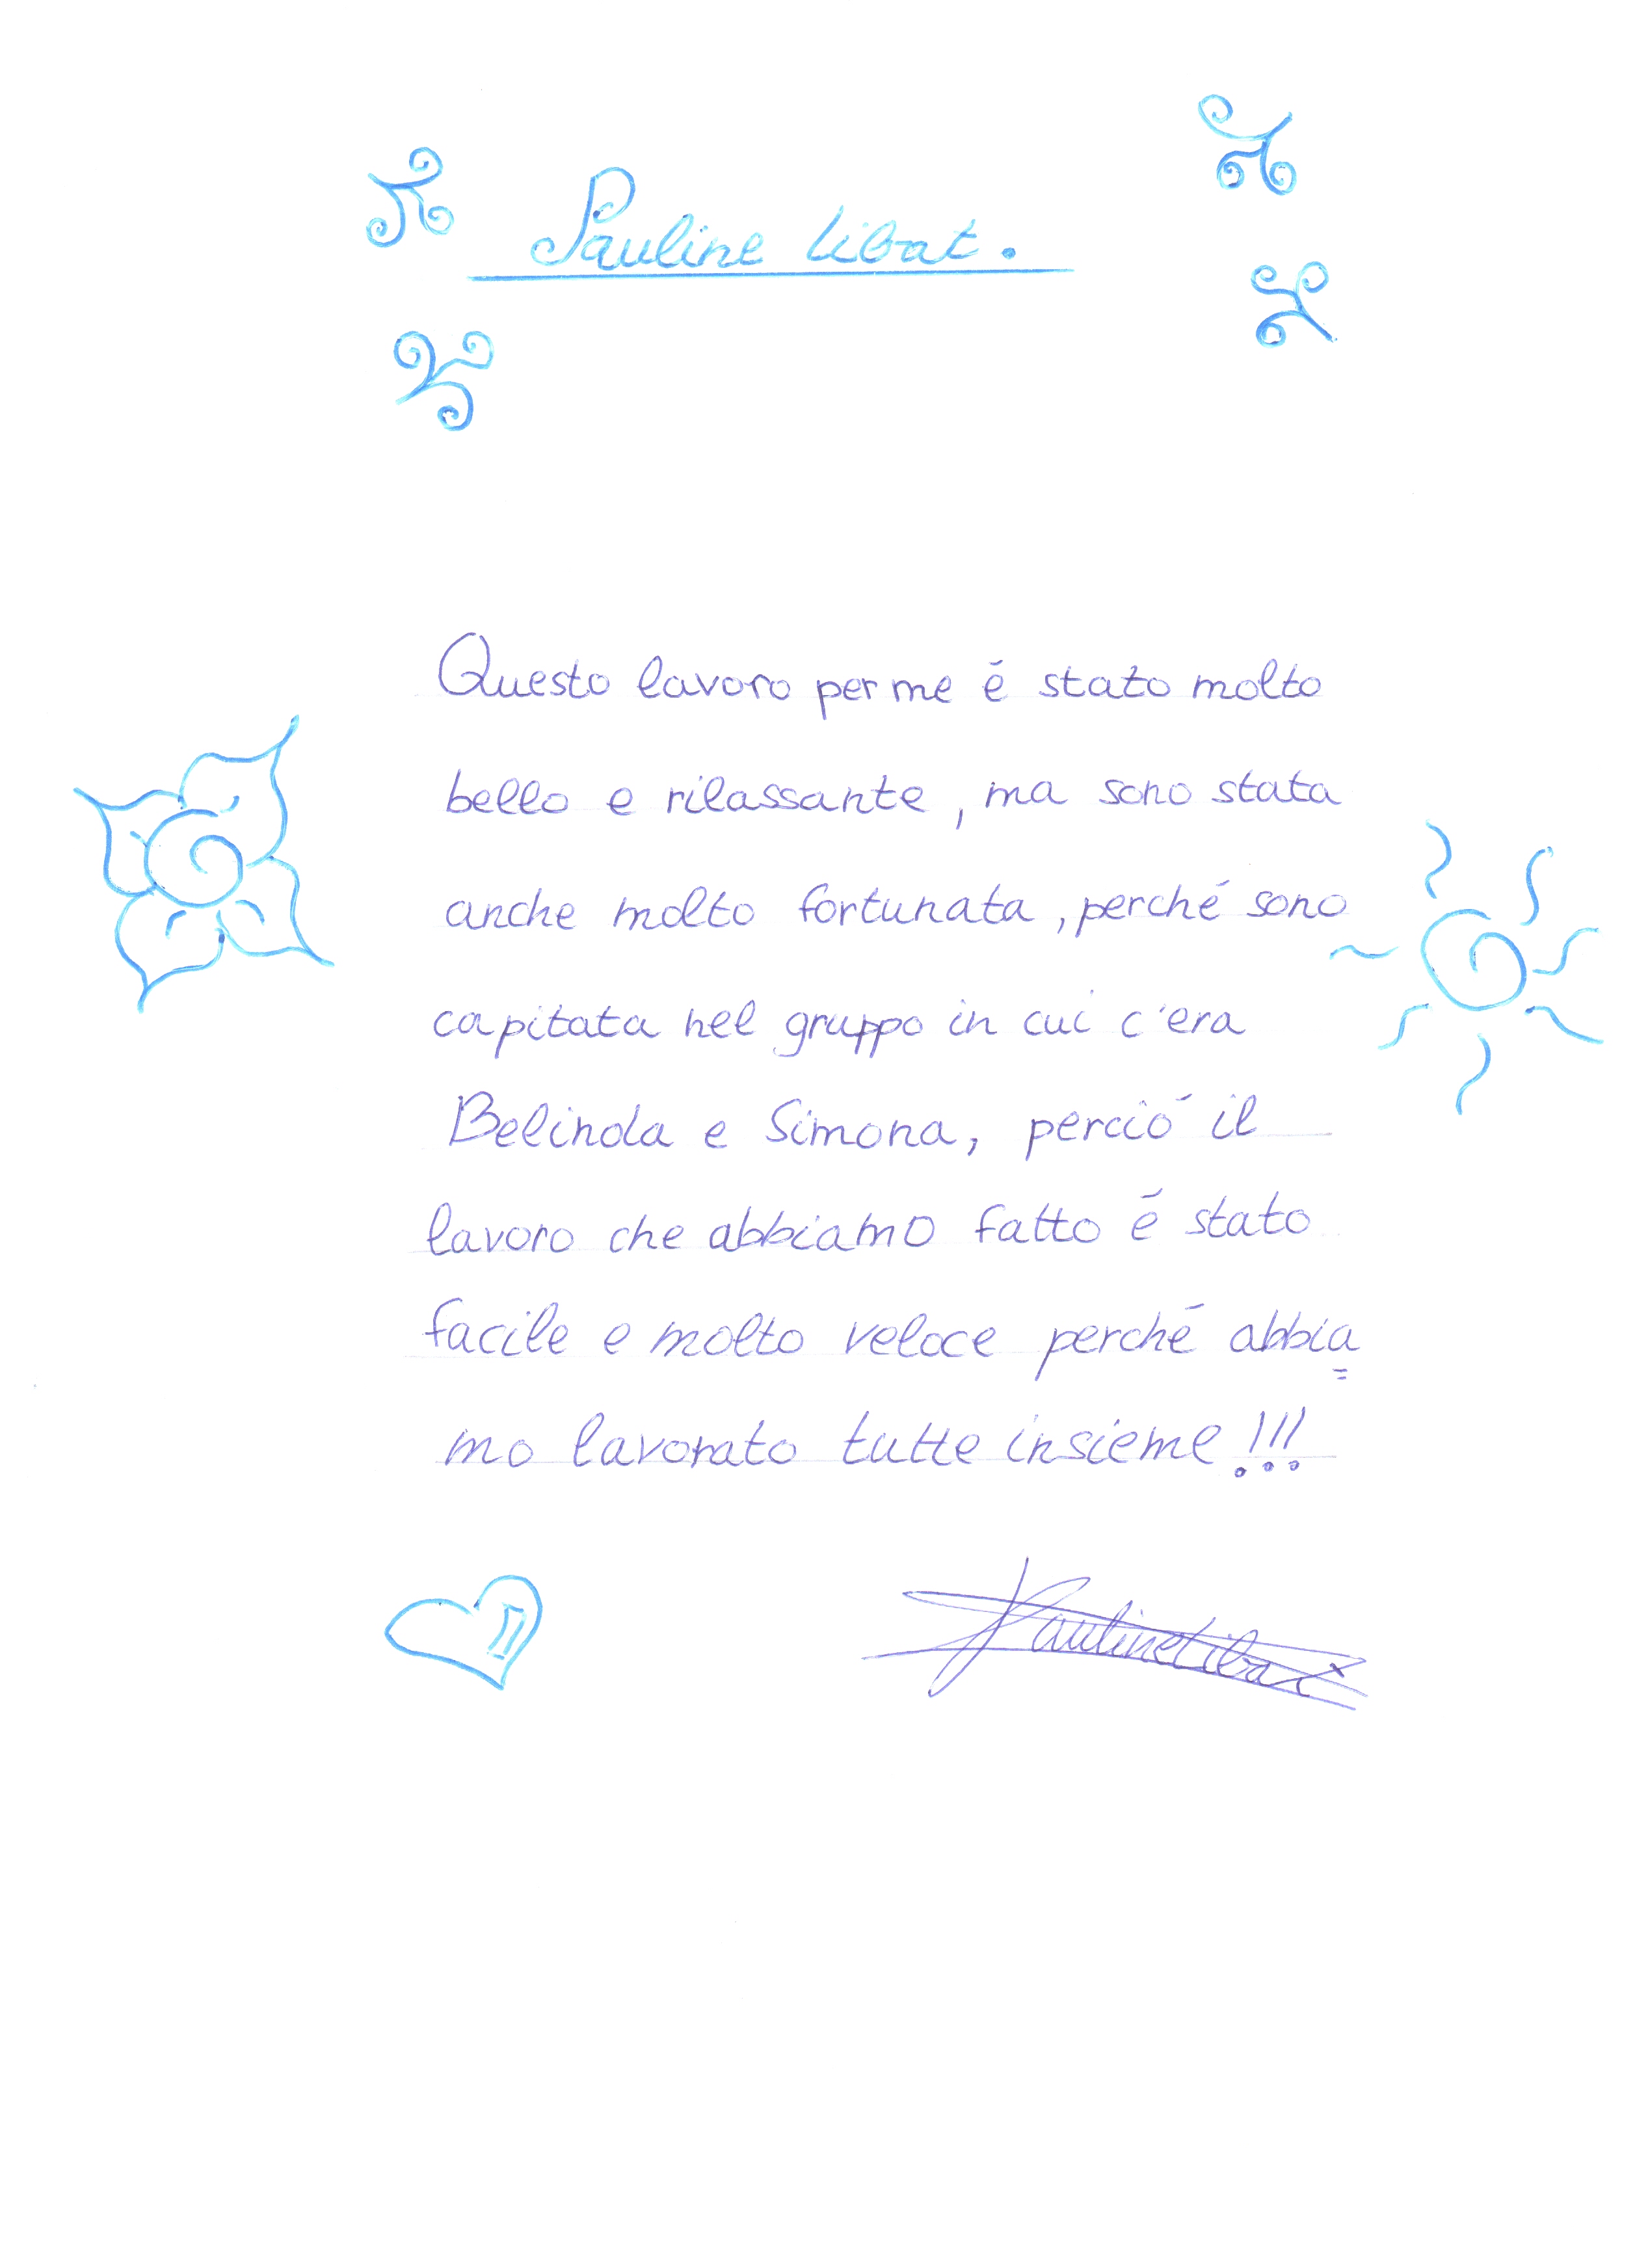 Pauline Libat.
Questo lavoro per me é stato molto
bello e rilassante, ma sono stata
anche molto fortunata, perché sono
capitata nel gruppo in cui c'era
Belinda e Simona, perció il
lavoro che abbiamo fatto é stato
facile e molto veloce perché abbia=
mo lavorato tutte insieme!!!
Pauline Libat